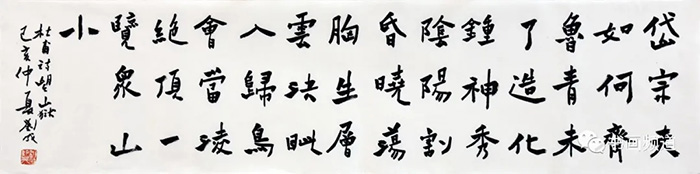 岱宗夫
如何齊
魯青未
了造化
鍾神秀
陰陽割
昏曉蕩
胸生層
雲決眦
入歸鳥
會當凌
絶頂一
覽衆山
小
杜甫诗望嶽
己亥仲夏
书画频道